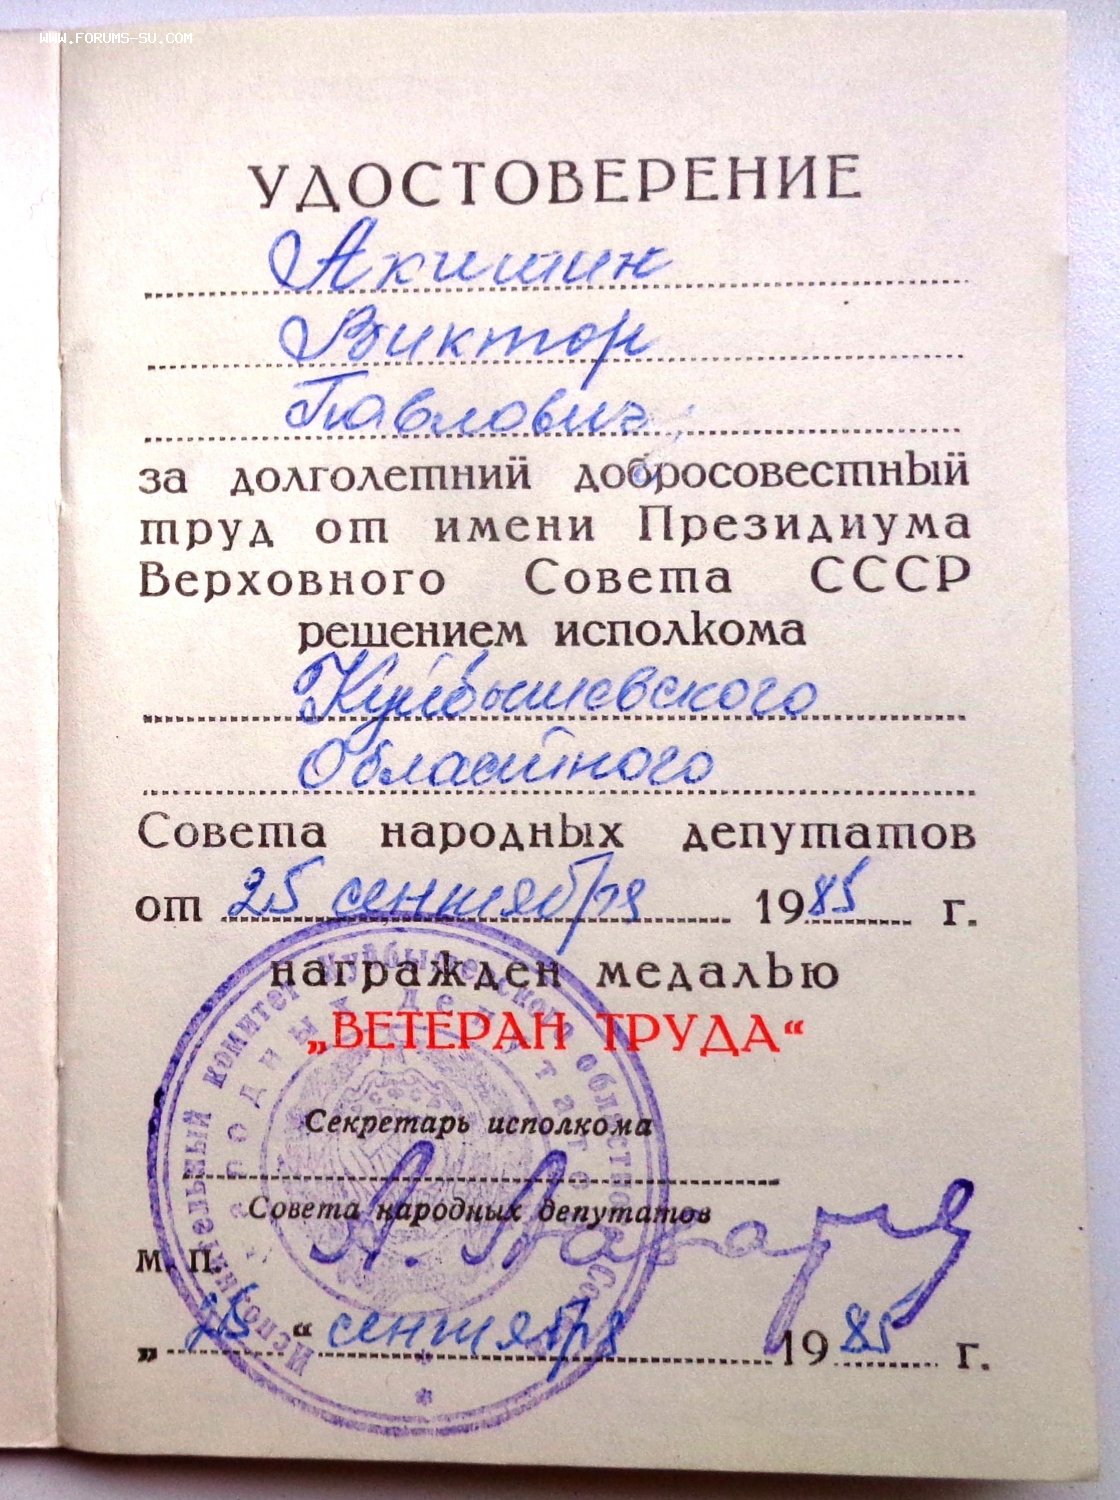 WWW.FORUMS-SU.COM
УДОСТОВЕРЕНИЕ
Акишин
Виктор
Павлович
за долголетний добросовестный
труд от имени Президиума
Верховного Совета СССР
решением исполкома
Куйбышевского
Областного
Совета народных депутатов
от 25 сентября 1985 г.
награжден медалью
„ВЕТЕРАН ТРУДА“
Секретарь исполкома
Совета народных депутатов
М. П.
„25“ сентября 1985 г.
Исполнительный комитет Куйбышевского областного Совета
народных депутатов